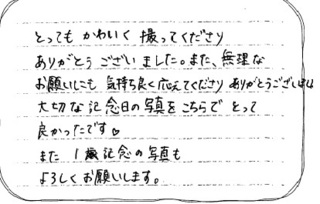 とっても かわいく 撮ってくださり
ありがとう ございました。また、無理な
お願いにも 気持ち良く応えてくださり ありがとうございました
大切な記念日の写真をこちらで とって
良かったです。
また 1歳記念の写真も
よろしくお願いします。